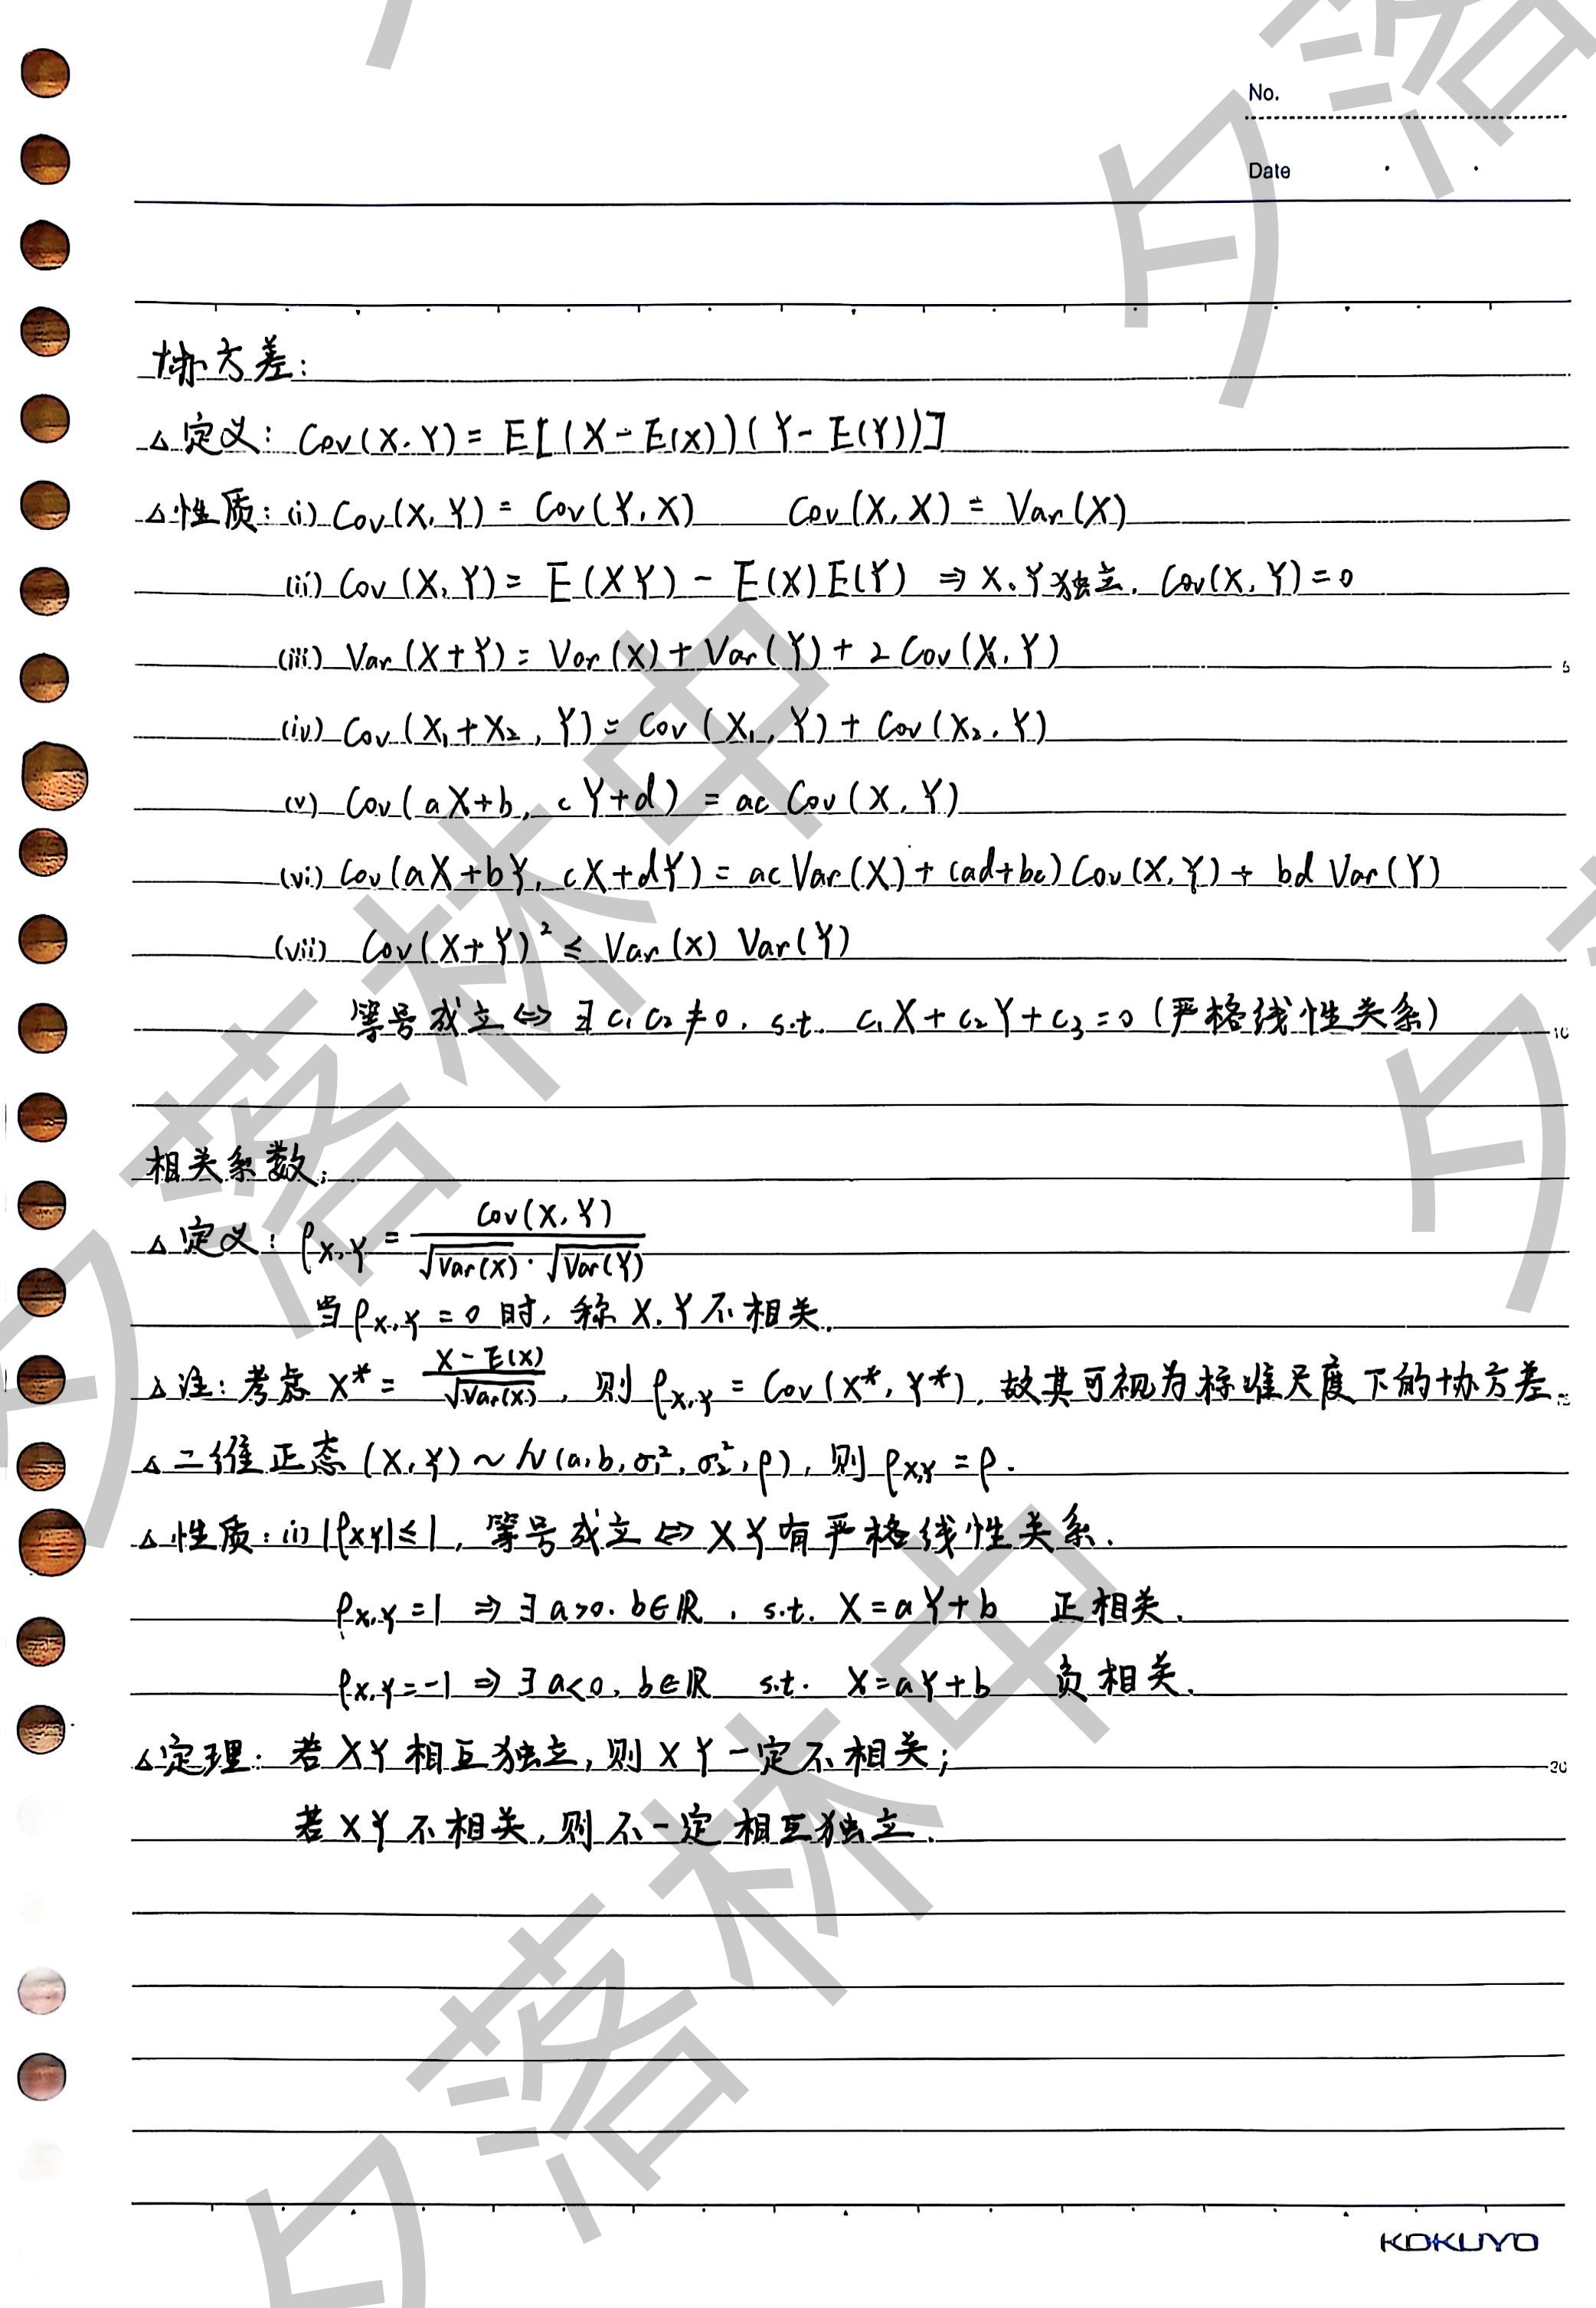 No.
Date
协方差:
△定义: Cov(X,Y) = E[(X-E(X))(Y-E(Y))]
△性质: (i) Cov(X,Y) = Cov(Y,X)  Cov(X,X) = Var(X)
(ii) Cov(X,Y) = E(XY) - E(X)E(Y) ⇒ X,Y独立, Cov(X,Y)=0
(iii) Var(X+Y) = Var(X) + Var(Y) + 2Cov(X,Y)
5
(iv) Cov(X₁+X₂, Y) = Cov(X₁,Y) + Cov(X₂,Y)
(v) Cov(aX+b, cY+d) = ac Cov(X,Y)
(vi) Cov(aX+bY, cX+dY) = ac Var(X) + (ad+bc)Cov(X,Y) + bd Var(Y)
(vii) Cov(X+Y)² ≤ Var(X) Var(Y)
等号成立 ⇔ ∃ c₁c₂≠0, s.t. c₁X+c₂Y+c₃=0 (严格线性关系)
10
相关系数:
△定义: ρX,Y = Cov(X,Y) / √Var(X)·√Var(Y)
当ρX,Y=0时, 称X,Y不相关.
△注: 考虑X* = X-E(X) / √Var(X), 则ρX,Y = Cov(X*,Y*), 故其可视为标准尺度下的协方差.
15
△二维正态 (X,Y)~N(a,b,σ₁²,σ₂²,ρ), 则ρX,Y=ρ.
△性质: (i) |ρXY|≤1, 等号成立 ⇔ XY有严格线性关系.
ρX,Y=1 ⇒ ∃a>0, b∈ℝ, s.t. X=aY+b 正相关.
ρX,Y=-1 ⇒ ∃a<0, b∈ℝ s.t. X=aY+b 负相关.
△定理: 若XY相互独立, 则XY一定不相关;
20
若XY不相关, 则不一定相互独立.
KOKUYO
夕落林中
夕落林中
夕落
夕